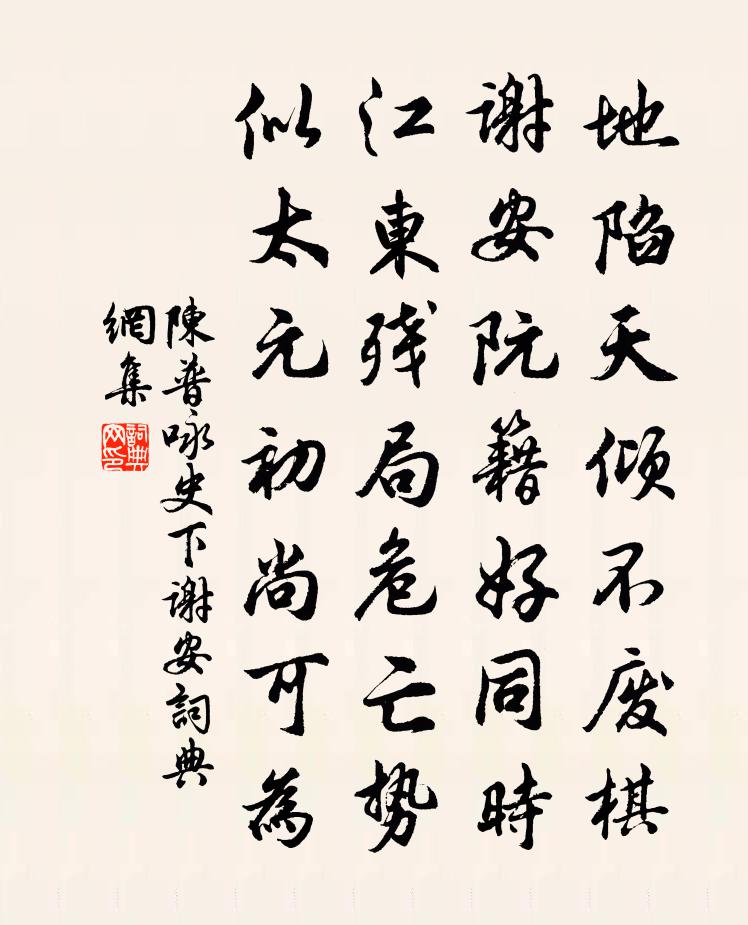 地陷天倾不废棋
谢安阮籍好同時
江東残局危亡势
似太元初尚可為
陳普咏史下谢安詞典
網集
詞典
网印